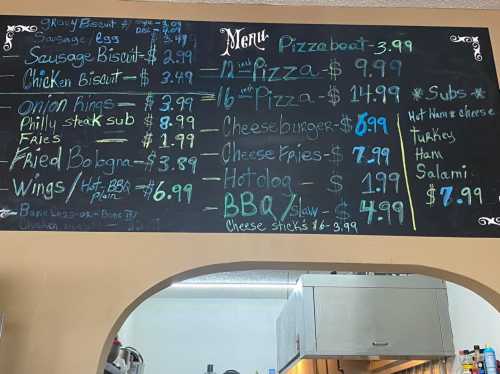 Gravy Biscuit
Sausage/Egg $ 3.49
Sausage Biscuit-$ 2.99
Chicken Biscuit-$ 3.49
Onion Rings-$ 3.99
Philly steak sub $ 8.99
Fries - $ 1.99
Fried Bologna-$3.89
Wings/Hot-BBQ-$6.99
plain
Menu
Pizza boat-3.99
12 inch Pizza-$ 9.99
16 inch Pizza-$ 14.99
Cheeseburger-$6.99
Cheese Fries-$ 7.99
Hotdog-$ 1.99
BBQ/slaw-$ 4.99
Cheese sticks $6-3.99
*Subs*
Hot Ham & cheese
Turkey
Ham
Salami
$7.99